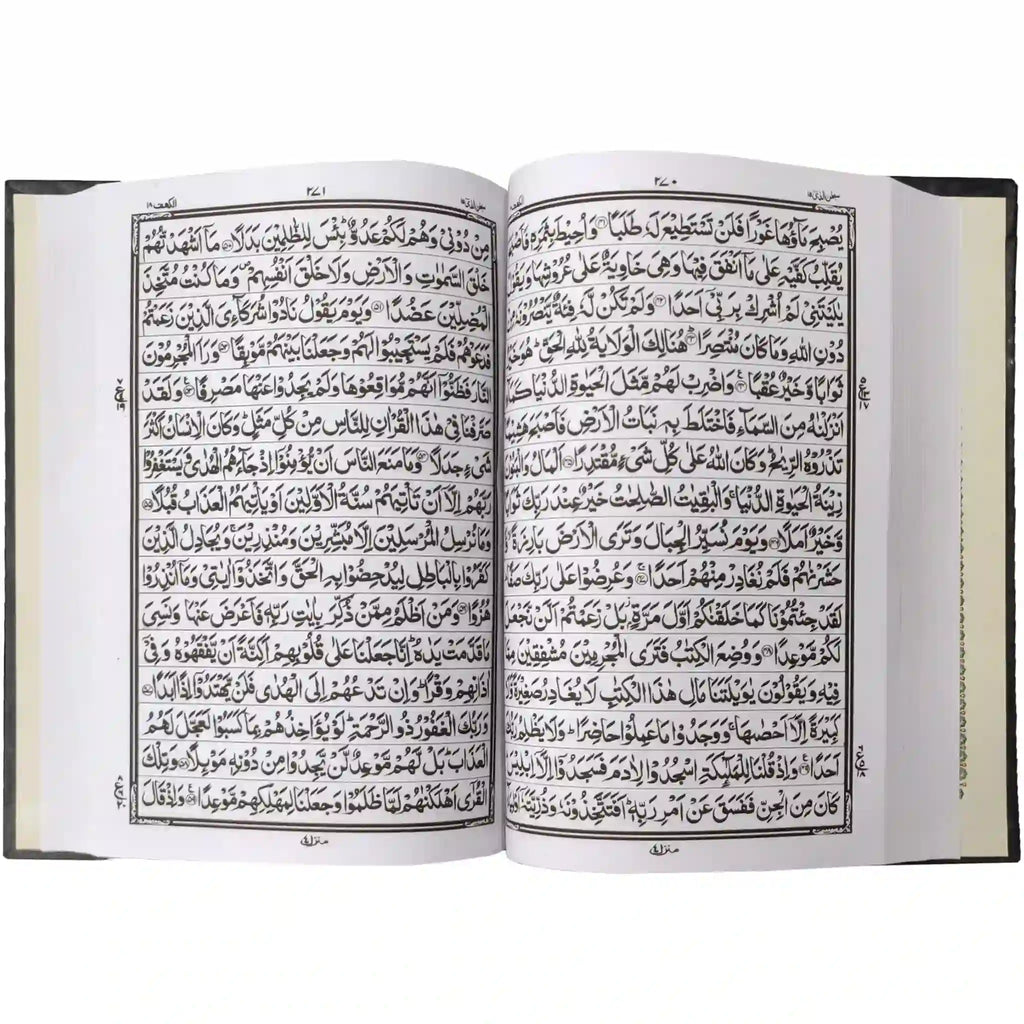 ٢٧٠
سبحٰن الذی ١٥
يُّصْبِحَ مَآؤُهَا غَوْرًا فَلَنْ تَسْتَطِيْعَ لَهٗ طَلَبًا ﴿٤١﴾ وَاُحِيْطَ بِثَمَرِهٖ فَاَصْبَحَ
يُقَلِّبُ كَفَّيْهِ عَلٰى مَآ اَنْفَقَ فِيْهَا وَهِيَ خَاوِيَةٌ عَلٰى عُرُوْشِهَا وَيَقُوْلُ
يٰلَيْتَنِيْ لَمْ اُشْرِكْ بِرَبِّيْٓ اَحَدًا ﴿٤٢﴾ وَلَمْ تَكُنْ لَّهٗ فِئَةٌ يَّنْصُرُوْنَهٗ مِنْ
دُوْنِ اللّٰهِ وَمَا كَانَ مُنْتَصِرًا ﴿٤٣﴾ هُنَالِكَ الْوَلَايَةُ لِلّٰهِ الْحَقِّ ؕ هُوَ خَيْرٌ
ثَوَابًا وَّخَيْرٌ عُقْبًا ﴿٤٤﴾ وَاضْرِبْ لَهُمْ مَّثَلَ الْحَيٰوةِ الدُّنْيَا كَمَآءٍ
اَنْزَلْنٰهُ مِنَ السَّمَآءِ فَاخْتَلَطَ بِهٖ نَبَاتُ الْاَرْضِ فَاَصْبَحَ هَشِيْمًا
تَذْرُوْهُ الرِّيٰحُ ؕ وَكَانَ اللّٰهُ عَلٰى كُلِّ شَيْءٍ مُّقْتَدِرًا ﴿٤٥﴾ اَلْمَالُ وَالْبَنُوْنَ
زِيْنَةُ الْحَيٰوةِ الدُّنْيَا ۚ وَالْبٰقِيٰتُ الصّٰلِحٰتُ خَيْرٌ عِنْدَ رَبِّكَ ثَوَابًا
وَّخَيْرٌ اَمَلًا ﴿٤٦﴾ وَيَوْمَ نُسَيِّرُ الْجِبَالَ وَتَرَى الْاَرْضَ بَارِزَةً ۙ
حَشَرْنٰهُمْ فَلَمْ نُغَادِرْ مِنْهُمْ اَحَدًا ﴿٤٧﴾ وَعُرِضُوْا عَلٰى رَبِّكَ صَفًّا ؕ
لَقَدْ جِئْتُمُوْنَا كَمَا خَلَقْنٰكُمْ اَوَّلَ مَرَّةٍۭ ؗ بَلْ زَعَمْتُمْ اَلَّنْ نَّجْعَلَ
لَكُمْ مَّوْعِدًا ﴿٤٨﴾ وَوُضِعَ الْكِتٰبُ فَتَرَى الْمُجْرِمِيْنَ مُشْفِقِيْنَ مِمَّا
فِيْهِ وَيَقُوْلُوْنَ يٰوَيْلَتَنَا مَالِ هٰذَا الْكِتٰبِ لَا يُغَادِرُ صَغِيْرَةً وَّلَا
كَبِيْرَةً اِلَّآ اَحْصٰهَا ۚ وَوَجَدُوْا مَا عَمِلُوْا حَاضِرًا ؕ وَلَا يَظْلِمُ رَبُّكَ
اَحَدًا ﴿٤٩﴾ وَاِذْ قُلْنَا لِلْمَلٰٓئِكَةِ اسْجُدُوْا لِاٰدَمَ فَسَجَدُوْٓا اِلَّآ اِبْلِيْسَ ؕ
كَانَ مِنَ الْجِنِّ فَفَسَقَ عَنْ اَمْرِ رَبِّهٖ ؕ اَفَتَتَّخِذُوْنَهٗ وَذُرِّيَّتَهٗٓ اَوْلِيَآءَ
منزل ٤
٢٧١
سبحٰن الذی ١٥
الکهف ١٨
مِنْ دُوْنِيْ وَهُمْ لَكُمْ عَدُوٌّ ؕ بِئْسَ لِلظّٰلِمِيْنَ بَدَلًا ﴿٥٠﴾ مَآ اَشْهَدْتُّهُمْ
خَلْقَ السَّمٰوٰتِ وَالْاَرْضِ وَلَا خَلْقَ اَنْفُسِهِمْ ۪ وَمَا كُنْتُ مُتَّخِذَ
الْمُضِلِّيْنَ عَضُدًا ﴿٥١﴾ وَيَوْمَ يَقُوْلُ نَادُوْا شُرَكَآءِيَ الَّذِيْنَ زَعَمْتُمْ
فَدَعَوْهُمْ فَلَمْ يَسْتَجِيْبُوْا لَهُمْ وَجَعَلْنَا بَيْنَهُمْ مَّوْبِقًا ﴿٥٢﴾ وَرَاَ الْمُجْرِمُوْنَ
النَّارَ فَظَنُّوْٓا اَنَّهُمْ مُّوَاقِعُوْهَا وَلَمْ يَجِدُوْا عَنْهَا مَصْرِفًا ﴿٥٣﴾ وَلَقَدْ
صَرَّفْنَا فِيْ هٰذَا الْقُرْاٰنِ لِلنَّاسِ مِنْ كُلِّ مَثَلٍ ؕ وَكَانَ الْاِنْسَانُ اَكْثَرَ
شَيْءٍ جَدَلًا ﴿٥٤﴾ وَمَا مَنَعَ النَّاسَ اَنْ يُّؤْمِنُوْٓا اِذْ جَآءَهُمُ الْهُدٰى وَيَسْتَغْفِرُوْا
رَبَّهُمْ اِلَّآ اَنْ تَاْتِيَهُمْ سُنَّةُ الْاَوَّلِيْنَ اَوْ يَاْتِيَهُمُ الْعَذَابُ قُبُلًا ﴿٥٥﴾
وَمَا نُرْسِلُ الْمُرْسَلِيْنَ اِلَّا مُبَشِّرِيْنَ وَمُنْذِرِيْنَ ۚ وَيُجَادِلُ الَّذِيْنَ
كَفَرُوْا بِالْبَاطِلِ لِيُدْحِضُوْا بِهِ الْحَقَّ وَاتَّخَذُوْٓا اٰيٰتِيْ وَمَآ اُنْذِرُوْا
هُزُوًا ﴿٥٦﴾ وَمَنْ اَظْلَمُ مِمَّنْ ذُكِّرَ بِاٰيٰتِ رَبِّهٖ فَاَعْرَضَ عَنْهَا وَنَسِيَ
مَا قَدَّمَتْ يَدٰهُ ؕ اِنَّا جَعَلْنَا عَلٰى قُلُوْبِهِمْ اَكِنَّةً اَنْ يَّفْقَهُوْهُ وَفِيْٓ
اٰذَانِهِمْ وَقْرًا ؕ وَاِنْ تَدْعُهُمْ اِلَى الْهُدٰى فَلَنْ يَّهْتَدُوْٓا اِذًا اَبَدًا ﴿٥٧﴾
وَرَبُّكَ الْغَفُوْرُ ذُو الرَّحْمَةِ ؕ لَوْ يُؤَاخِذُهُمْ بِمَا كَسَبُوْا لَعَجَّلَ لَهُمُ
الْعَذَابَ ؕ بَلْ لَّهُمْ مَّوْعِدٌ لَّنْ يَّجِدُوْا مِنْ دُوْنِهٖ مَوْئِلًا ﴿٥٨﴾ وَتِلْكَ
الْقُرٰٓى اَهْلَكْنٰهُمْ لَمَّا ظَلَمُوْا وَجَعَلْنَا لِمَهْلِكِهِمْ مَّوْعِدًا ﴿٥٩﴾ وَاِذْ قَالَ
منزل ٤